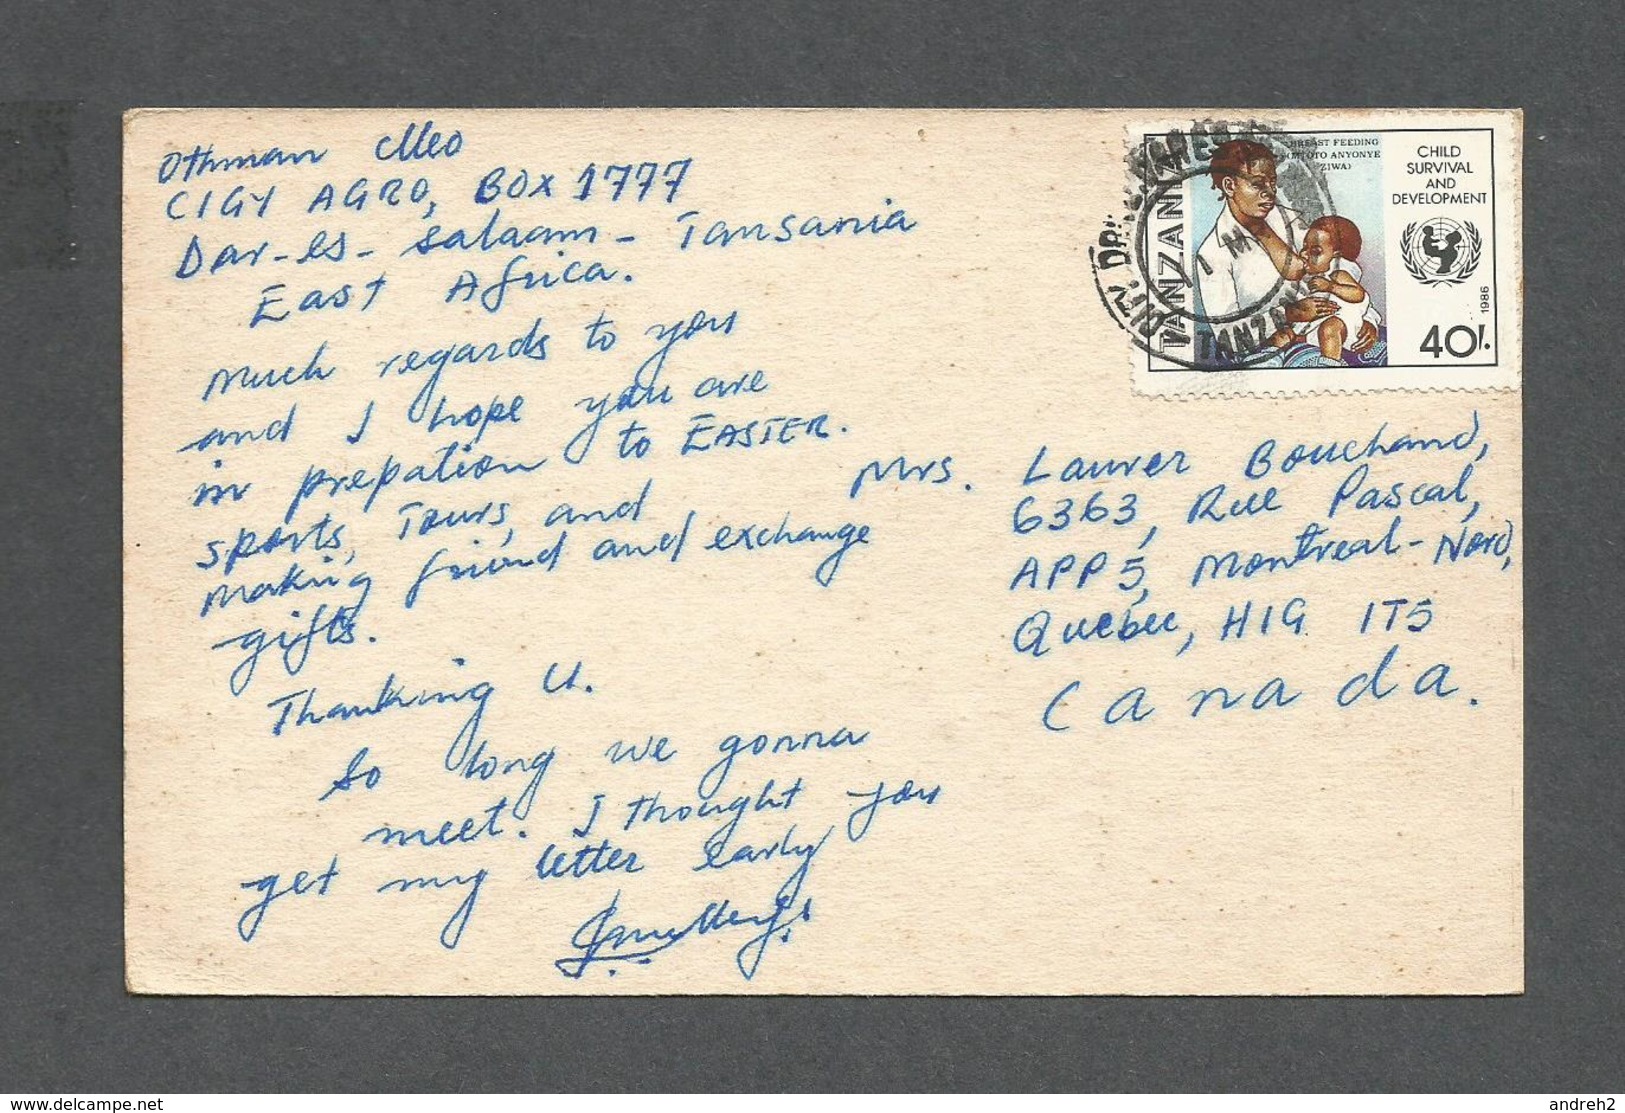 Othman Meo
CIGY AGRO, BOX 1777
Dar-es-salaam- Tansania
East Africa.
Much regards to you
and I hope you are
in prepation to EASTER.
sports, Tours, and
making friend and exchange
gifts.
Thanking U.
So long we gonna
meet. I thought you
get my letter early
Mrs. Laurer Bouchand,
6363, Rue Pascal,
APP 5, Montreal-Nord,
Quebec, H1G 1T5
Canada.
TANZANIA
BREAST FEEDING
(MTOTO ANYONYE
ZIWA)
CHILD
SURVIVAL
AND
DEVELOPMENT
1986
40/.
TANZANIA
www.delcampe.net
andreh2